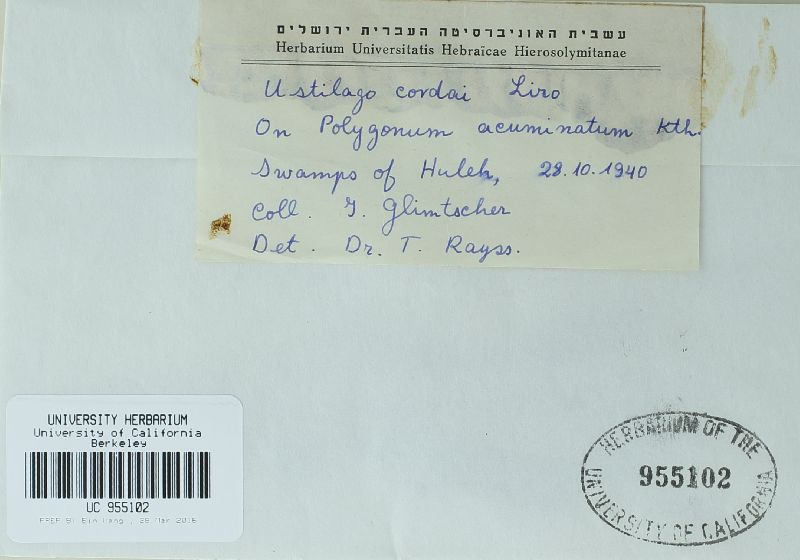 עשבית האוניברסיטה העברית ירושלים
Herbarium Universitatis Hebraïcae Hierosolymitanae
Ustilago cordai Liro
On Polygonum acuminatum Kth.
Swamps of Huleh, 28.10.1940
Coll. J. Glimtscher
Det. Dr. T. Rayss.
UNIVERSITY HERBARIUM
University of California
Berkeley
UC 955102
PREP. BY Bin Wang, 28 Mar 2016
HERBARIUM OF THE
955102
UNIVERSITY OF CALIFORNIA